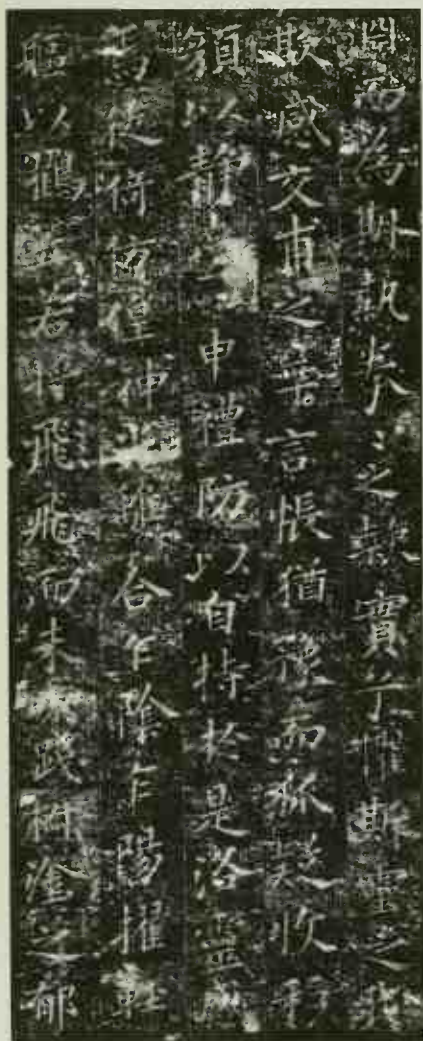 淵而為期執眷〻之款實兮懼斯靈之我
欺感交甫之棄言悵猶豫而狐疑收和
顏以靜志兮申禮防以自持於是洛靈感
焉徙倚仿偟神光離合乍陰乍陽擢輕
軀以鶴立若將飛飛而未翔踐椒塗之郁